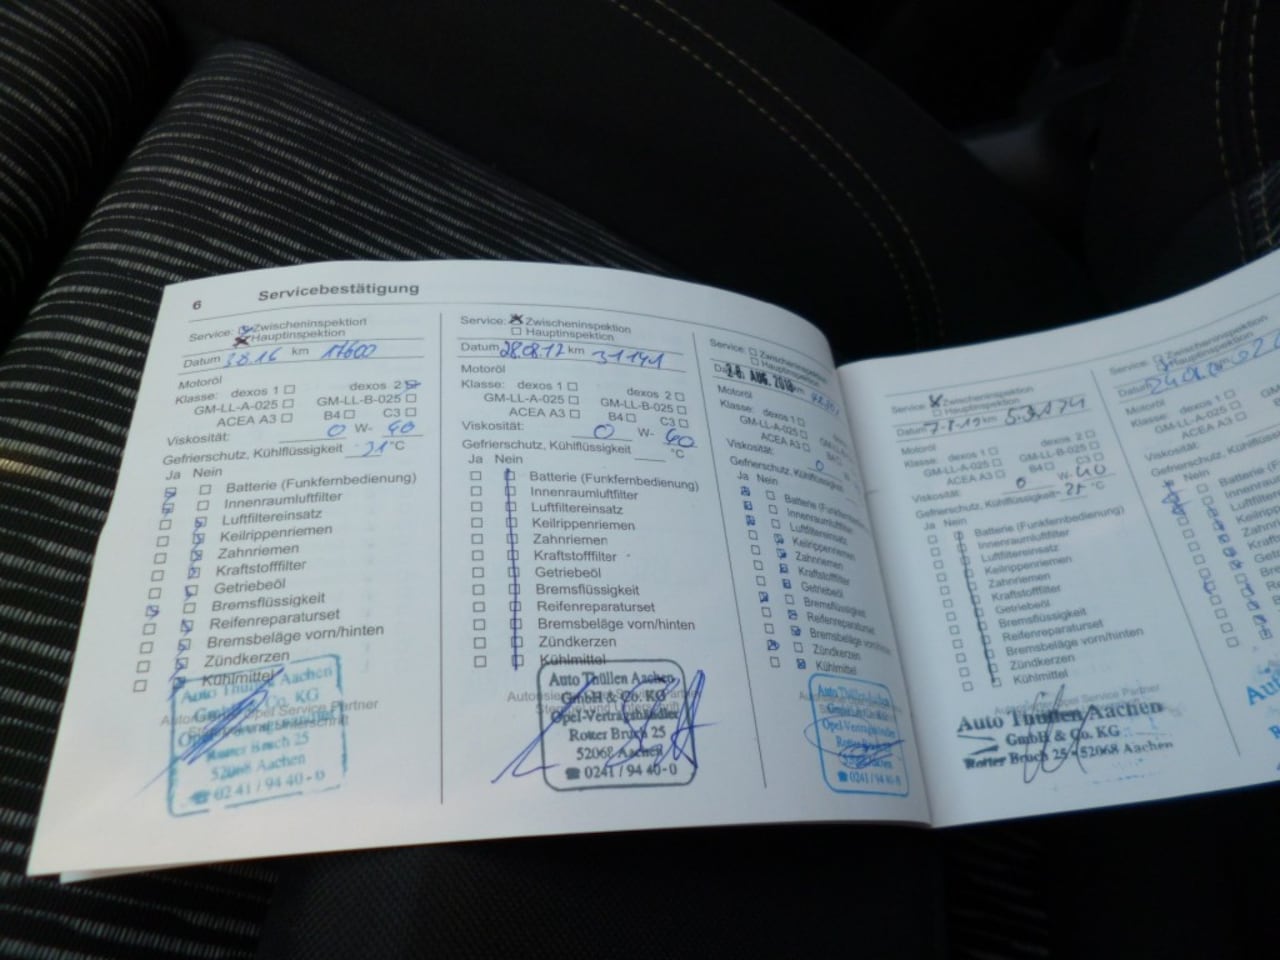 6 Servicebestätigung
Service: Zwischeninspektion
Hauptinspektion
Datum 3.8.16 km 17600
Motoröl
Klasse: dexos 1 dexos 2
GM-LL-A-025 GM-LL-B-025
ACEA A3 B4 C3
Viskosität: 0 W- 40
Gefrierschutz, Kühlflüssigkeit -31 °C
Ja Nein
Batterie (Funkfernbedienung)
Innenraumluftfilter
Luftfiltereinsatz
Keilrippenriemen
Zahnriemen
Kraftstofffilter
Getriebeöl
Bremsflüssigkeit
Reifenreparaturset
Bremsbeläge vorn/hinten
Zündkerzen
Kühlmittel
Opel Service Partner
Auto Thüllen Aachen
GmbH & Co. KG
Rotter Bruch 25
52068 Aachen
☎ 0241 / 94 40 - 0
Service: Zwischeninspektion
Hauptinspektion
Datum 28.08.17 km 31141
Motoröl
Klasse: dexos 1 dexos 2
GM-LL-A-025 GM-LL-B-025
ACEA A3 B4 C3
Viskosität: 0 W- 40
Gefrierschutz, Kühlflüssigkeit °C
Ja Nein
Batterie (Funkfernbedienung)
Innenraumluftfilter
Luftfiltereinsatz
Keilrippenriemen
Zahnriemen
Kraftstofffilter
Getriebeöl
Bremsflüssigkeit
Reifenreparaturset
Bremsbeläge vorn/hinten
Zündkerzen
Kühlmittel
Auto Thüllen Aachen
GmbH & Co. KG
Opel-Vertragshändler
Rotter Bruch 25
52068 Aachen
☎ 0241 / 94 40 - 0
Service: Zwischeninspektion
Hauptinspektion
AUG.
Motoröl
Klasse: dexos 1
GM-LL-A-025
ACEA A3
Viskosität: 0
Gefrierschutz, Kühlflüssigkeit
Ja Nein
Batterie (Funkfernbedienung
Innenraumluftfilter
Luftfiltereinsatz
Keilrippenriemen
Zahnriemen
Kraftstofffilter
Getriebeöl
Bremsflüssigkeit
Reifenreparaturset
Bremsbeläge vorn/hinten
Zündkerzen
Kühlmittel
Auto Thüllen Aachen
GmbH & Co. KG
Opel-Vertragshändler
Rotter Bruch
52068 Aachen
☎ 0241 / 94 40 - 0
Service: Zwischeninspektion
Hauptinspektion
Datum 7-8-19 km
Motoröl
Klasse: dexos 1 dexos 2
GM-LL-A-025 GM-LL-B-025
ACEA A3 B4 C3
Viskosität: 0 W- 40
Gefrierschutz, Kühlflüssigkeit °C
Ja Nein
Batterie (Funkfernbedienung)
Innenraumluftfilter
Luftfiltereinsatz
Keilrippenriemen
Zahnriemen
Kraftstofffilter
Getriebeöl
Bremsflüssigkeit
Reifenreparaturset
Bremsbeläge vorn/hinten
Zündkerzen
Kühlmittel
Opel Service Partner
Auto Thüllen Aachen
GmbH & Co. KG
Rotter Bruch 25 - 52068 Aachen
Service:
Datum
Motoröl
Klasse: dexos 1
GM-LL-A-025
ACEA A3
Viskosität: